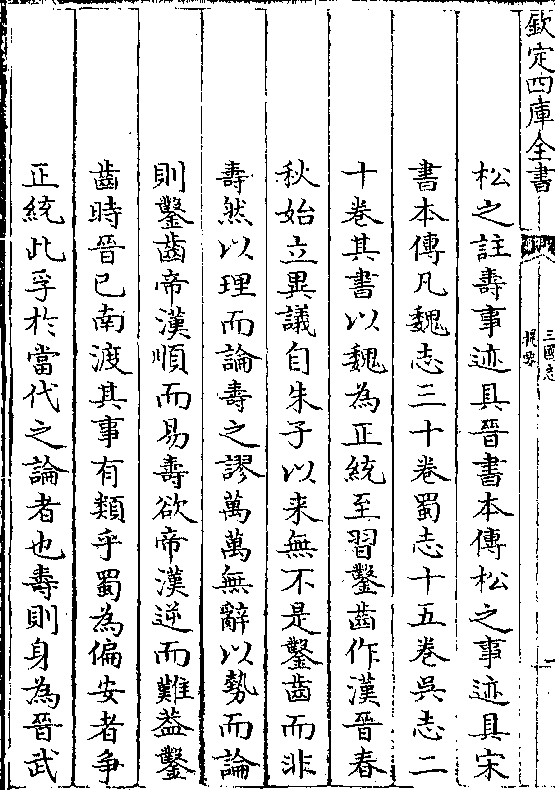 欽定四庫全書
三國志
提要
一
松之註壽事迹具晉書本傳松之事迹具宋
書本傳凡魏志三十卷蜀志十五卷吳志二
十卷其書以魏為正統至習鑿齒作漢晉春
秋始立異議自朱子以來無不是鑿齒而非
壽然以理而論壽之謬萬萬無辭以勢而論
則鑿齒帝漢順而易壽欲帝漢逆而難葢鑿
齒時晉已南渡其事有類乎蜀為偏安者爭
正統此孚於當代之論者也壽則身為晉武